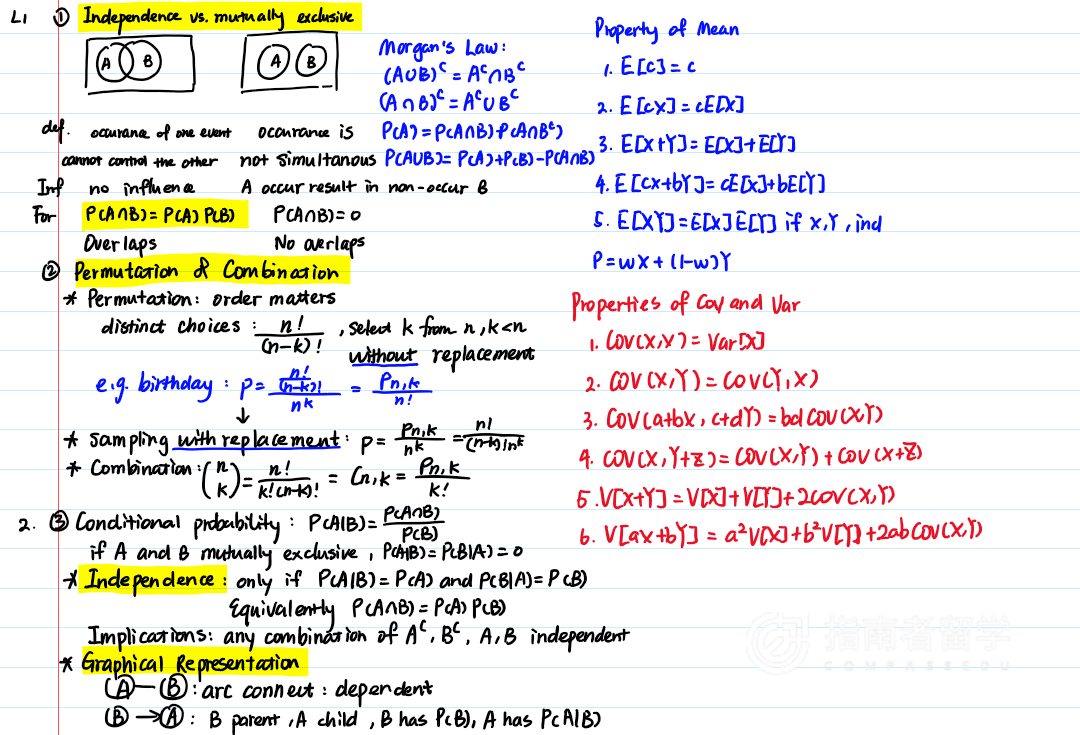 L1 ① Independence vs. mutually exclusive
A B A B
def. occurance of one event occurance is
cannot control the other not simultanous
Inf no influence A occur result in non-occur B
For P(A∩B)=P(A)P(B) P(A∩B)=0
Overlaps No overlaps
Morgan's Law:
(A∪B)^c = A^c∩B^c
(A∩B)^c = A^c∪B^c
P(A)=P(A∩B)+P(A∩B^c)
P(A∪B)=P(A)+P(B)-P(A∩B)
② Permutation & Combination
* Permutation: order matters
distinct choices: n!/(n-k)! , select k from n, k<n
without replacement
e.g. birthday: p= (n!/(n-k)!)/n^k = Pn,k/n!
↓
* sampling with replacement: p= Pn,k/n^k = n!/(n-k)!n^k
* Combination: (n k) = n!/k!(n-k)! = Cn,k = Pn,k/k!
2. ③ Conditional probability: P(A|B)= P(A∩B)/P(B)
if A and B mutually exclusive, P(A|B)=P(B|A)=0
* Independence: only if P(A|B)=P(A) and P(B|A)=P(B)
Equivalently P(A∩B)=P(A)P(B)
Implications: any combination of A^c, B^c, A, B independent
* Graphical Representation
Ⓐ—Ⓑ: arc connect: dependent
Ⓑ→Ⓐ: B parent, A child, B has P(B), A has P(A|B)
Property of Mean
1. E[c]=c
2. E[cX]=cE[X]
3. E[X+Y]=E[X]+E[Y]
4. E[cx+bY]=cE[X]+bE[Y]
5. E[XY]=E[X]E[Y] if X,Y, ind
P=wX+(1-w)Y
Properties of Cov and Var
1. Cov(X,X)=Var[X]
2. COV(X,Y)=COV(Y,X)
3. Cov(a+bx, c+dY)=bd COV(X,Y)
4. COV(X,Y+Z)=COV(X,Y)+COV(X+Z)
5. V[X+Y]=V[X]+V[Y]+2COV(X,Y)
6. V[ax+bY]=a²V[X]+b²V[Y]+2abCOV(X,Y)
指南者留学
COMPASSEDU